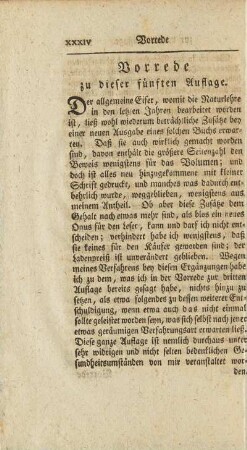 XXXIV Vorrede
Vorrede
zu dieser fünften Auflage.
Der allgemeine Eifer, womit die Naturlehre
in den letzten Jahren bearbeitet worden
ist, ließ wohl wiederum beträchtliche Zusätze bey
einer neuen Ausgabe eines solchen Buchs erwar-
ten. Daß sie auch wirklich gemacht worden
sind, davon enthält die größere Seitenzahl den
Beweis wenigstens für das Volumen; und
doch ist alles neu hinzugekommene mit kleiner
Schrift gedruckt, und manches was dadurch ent-
behrlich wurde, weggeblieben, wenigstens aus
meinem Antheil. Ob aber diese Zusätze dem
Gehalt nach etwas mehr sind, als blos ein neues
Onus für den Leser, kann und darf ich nicht ent-
scheiden; verhindert habe ich wenigstens, daß
sie keines für den Käufer geworden sind; der
Ladenpreiß ist unverändert geblieben. Wegen
meines Verfahrens bey diesen Ergänzungen habe
ich zu dem, was ich in der Vorrede zur dritten
Auflage bereits gesagt habe, nichts hinzu zu
setzen, als etwa folgendes zu dessen weiterer Ent-
schuldigung, wenn etwa auch das nicht einmal
sollte geleistet worden seyn, was sich selbst nach jener
etwas geräumigen Verfahrungsart erwarten ließ.
Diese ganze Auflage ist nemlich durchaus unter
sehr widrigen und nicht selten bedenklichen Ge-
sundheitsumständen von mir veranstaltet wor-
den.